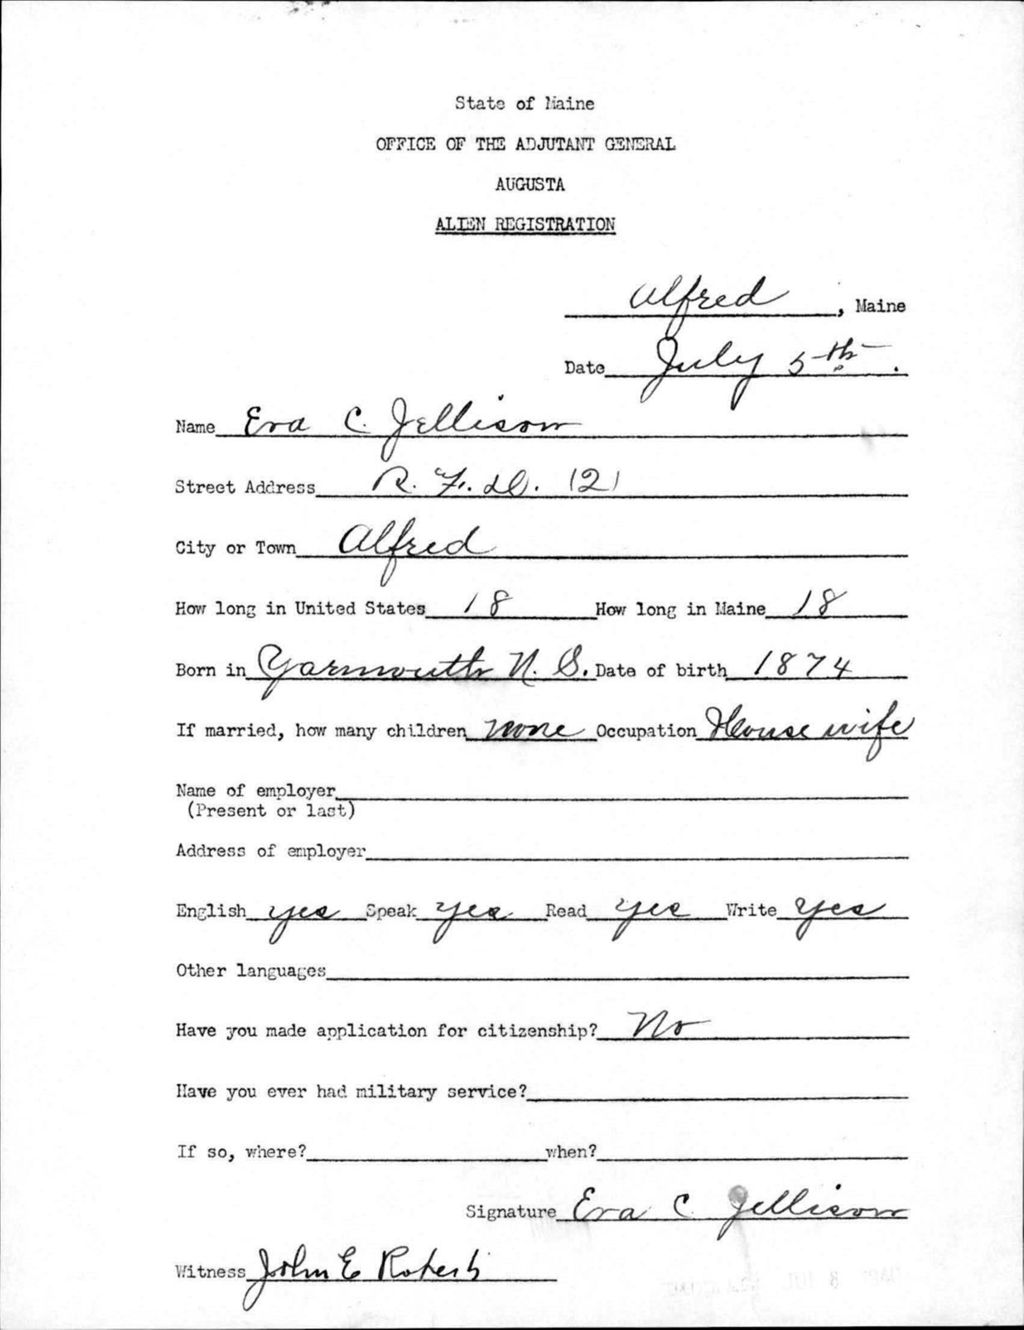 State of Maine
OFFICE OF THE ADJUTANT GENERAL
AUGUSTA
ALIEN REGISTRATION
Alfred, Maine
Date July 5th.
Name Eva C. Jellison
Street Address R. F. D. 121
City or Town Alfred
How long in United States 18 How long in Maine 18
Born in Yarmouth N. S. Date of birth 1874
If married, how many children none Occupation House wife
Name of employer
(Present or last)
Address of employer
English yes Speak yes Read yes Write yes
Other languages
Have you made application for citizenship? No
Have you ever had military service?
If so, where? when?
Signature Eva C Jellison
Witness John E Roberts